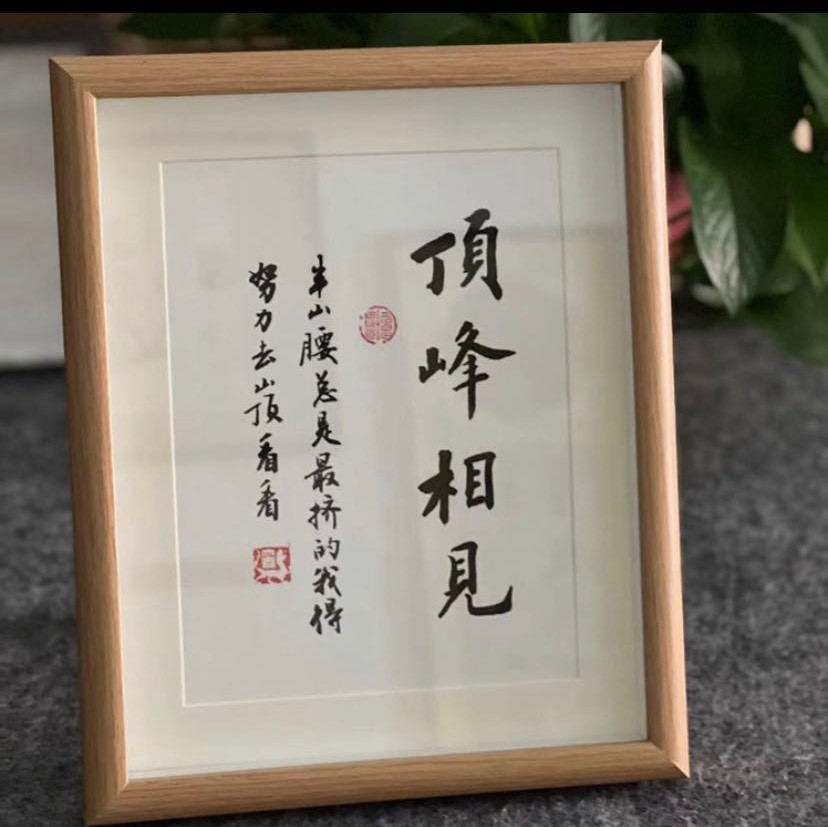 頂峰相見
半山腰总是最挤的我得
努力去山顶看看